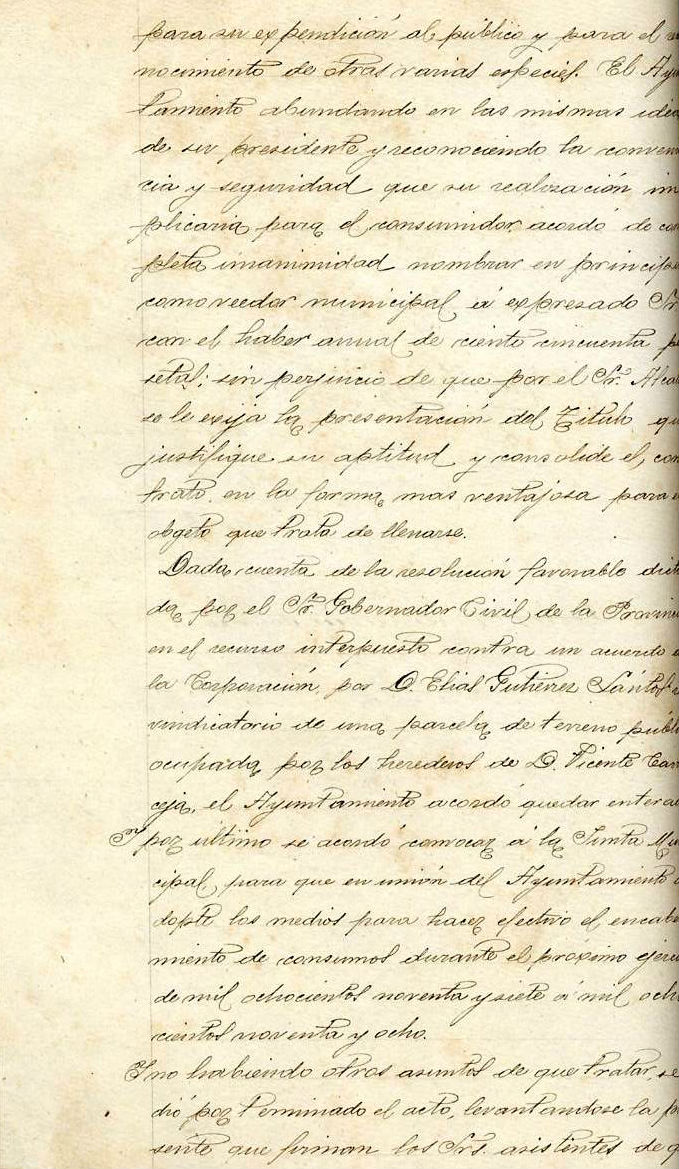 para su expendición al público y para el re
nocimiento de otras varias especies. El Ayun
tamiento abundando en las mismas idea
de su presidente y reconociendo la convenen
cia y seguridad que su realización im
plicaria para el consumidor acordó de com
pleta unanimidad nombrar en principio
como veedor municipal á expresado Sr.
con el haber anual de ciento cincuenta pe
setas; sin perjuicio de que por el Sr. Alcal
se le exija la presentación del Titulo qu
justifique su aptitud y consolide el con
trato en la forma mas ventajosa para e
objeto que trata de llenarse.
Dada cuenta de la resolución favorable dicta
da por el Sr. Gobernador Civil de la Provinci
en el recurso interpuesto contra un acuerdo d
la Corporación, por D. Elias Gutiérrez Sántos
vindicatorio de una parcela de terreno públi
ocupada por los herederos de D. Vicente Car
ceja, el Ayuntamiento acordó quedar entera
Y por último se acordó convocar á la Junta Mu
cipal, para que en unión del Ayuntamiento a
dopte los medios para hacer efectivo el encabe
miento de consumos durante el próximo ejerci
de mil ochocientos noventa y siete á mil ocho
cientos noventa y ocho.
Y no habiendo otros asuntos de que tratar, se
dió por terminado el acto, levantandose la pr
sente que firman los Srs. asistentes de q